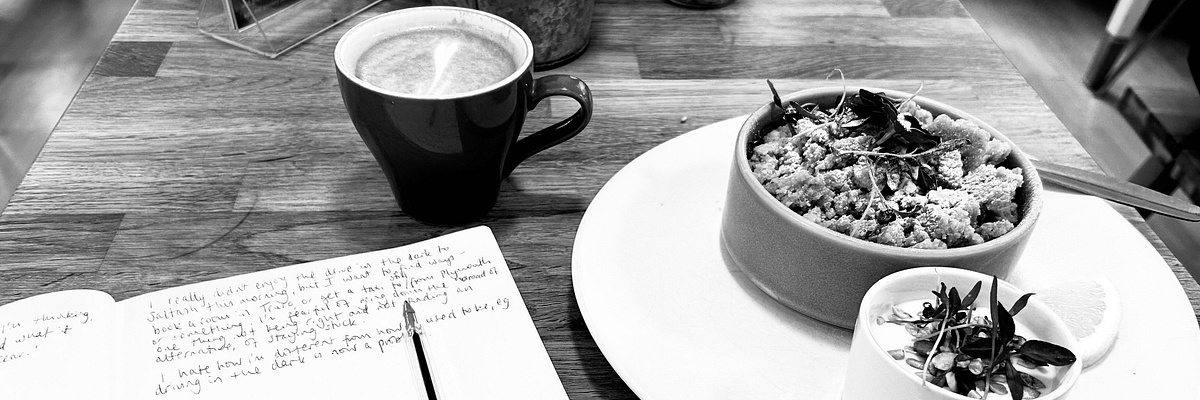 I'm thinking.
d what if
ear.'
I really didn't enjoy the drive in the dark to
Saltash this morning, but I want to find ways -
book a room in Truro or get a taxi to/from Plymouth
or something. I'm fearful of nine down the road of
one thing being right and not finding an
alternative, of staying stuck.
I hate how I'm different from how I used to be, eg
driving in the dark is now a prob